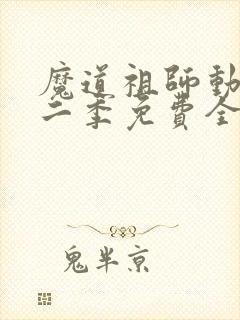 魔道祖师動
二季免費全
鬼半京